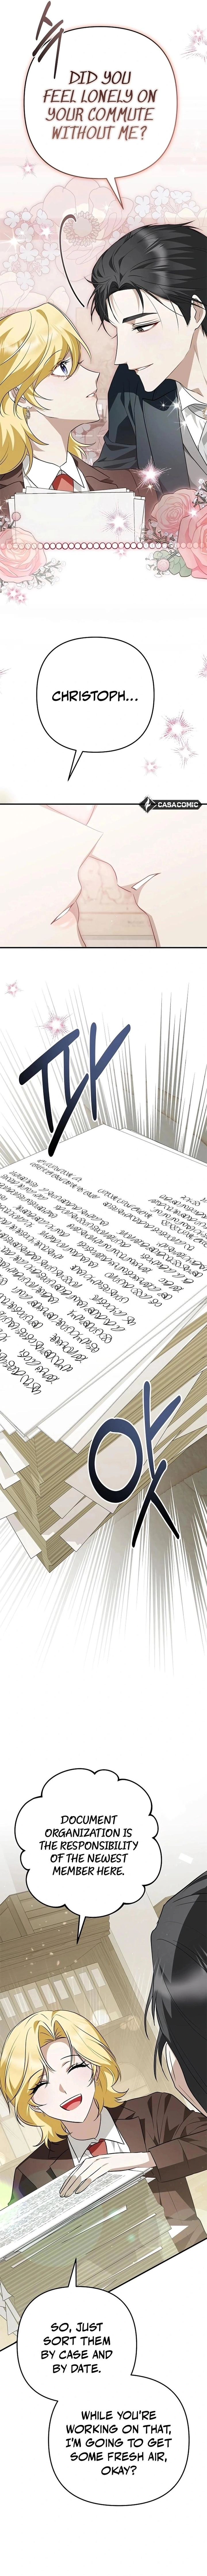 툭
DID YOU
FEEL LONELY ON
YOUR COMMUTE
WITHOUT ME?
CHRISTOPH...
CASACOMIC
파
앗
DOCUMENT
ORGANIZATION IS
THE RESPONSIBILITY
OF THE NEWEST
MEMBER HERE.
SO, JUST
SORT THEM
BY CASE AND
BY DATE.
WHILE YOU'RE
WORKING ON THAT,
I'M GOING TO GET
SOME FRESH AIR,
OKAY?